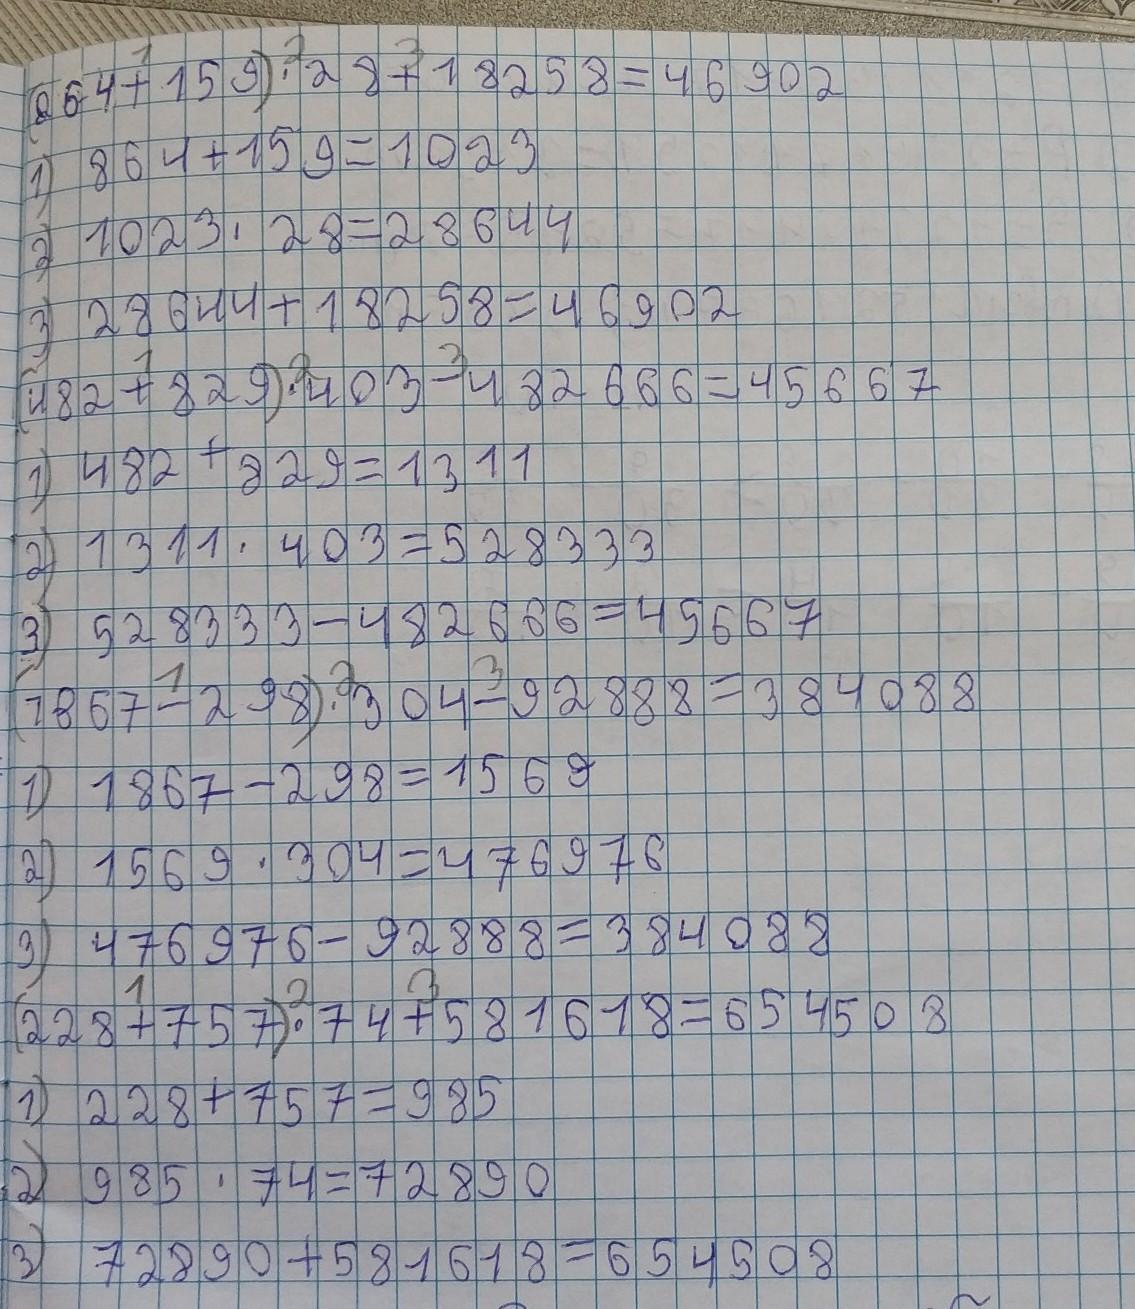 (864+159)·28+18258=46902
1) 864+159=1023
2) 1023·28=28644
3) 28644+18258=46902
(482+829)·403-482666=45667
1) 482+829=1311
2) 1311·403=528333
3) 528333-482666=45667
(1867-298)·304-92888=384088
1) 1867-298=1569
2) 1569·304=476976
3) 476976-92888=384088
(228+757)·74+581618=654508
1) 228+757=985
2) 985·74=72890
3) 72890+581618=654508